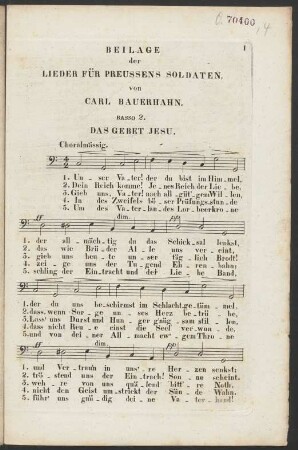 70400
1
BEILAGE
der
LIEDER FÜR PREUSSENS SOLDATEN.
von
CARL BAUERHAHN.
BASSO 2.
DAS GEBET JESU.
Choralmässig.
1. Un_ser Va_ter! der du bist im Him_mel,
2. Dein Reich komme! Je_nes Reich der Lie_be,
3. Gieb uns Va_ter! nach all_güt'gen Wil_len,
4. In des Zweifels bö_ser Prüfungs_stun_de
5. Um des Va_ter_lan_des Lor_beerkro_ne
ff dim.
1. der all_mäch_tig du das Schick_sal lenkst,
2. das wie Brü_der Al_le uns ver_eint,
3. gieb uns heu_te un_ser täg_lich Brodt!
4. zei_ge uns der Tugend Eh_ren_bahn;
5. schling der Ein_tracht und der Lie_be Band,
1. der du uns beschirmst im Schlacht_getüm_mel,
2. dass, wenn Sor_ge un_ses Herz be_trü_be,
3. Lass' uns Durst und Hun_ger gnüg_sam stil_len,
4. dass nicht Reu_e einst die Seel' verwun_de,
5. und von dei_ner All_macht ew'_gen Thro_ne
ff dim. ff
1. und Vertrau'n in uns'_re Her_zen senkst;
2. trö_stend uns der Ein_tracht Son_ne scheint.
3. weh_re von uns quä_lend bitt'_re Noth.
4. nicht den Geist um_strickt der Sün_de Wahn.
5. führ' uns gnä_dig dei_ne Va_ter_hand!